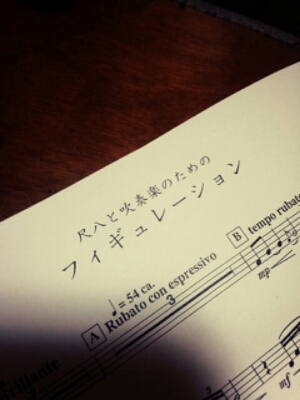 尺八と吹奏楽のための
フィギュレーション
♩= 54 ca.
A Rubato con espressivo
B tempo rubato
3
mp
3
mf